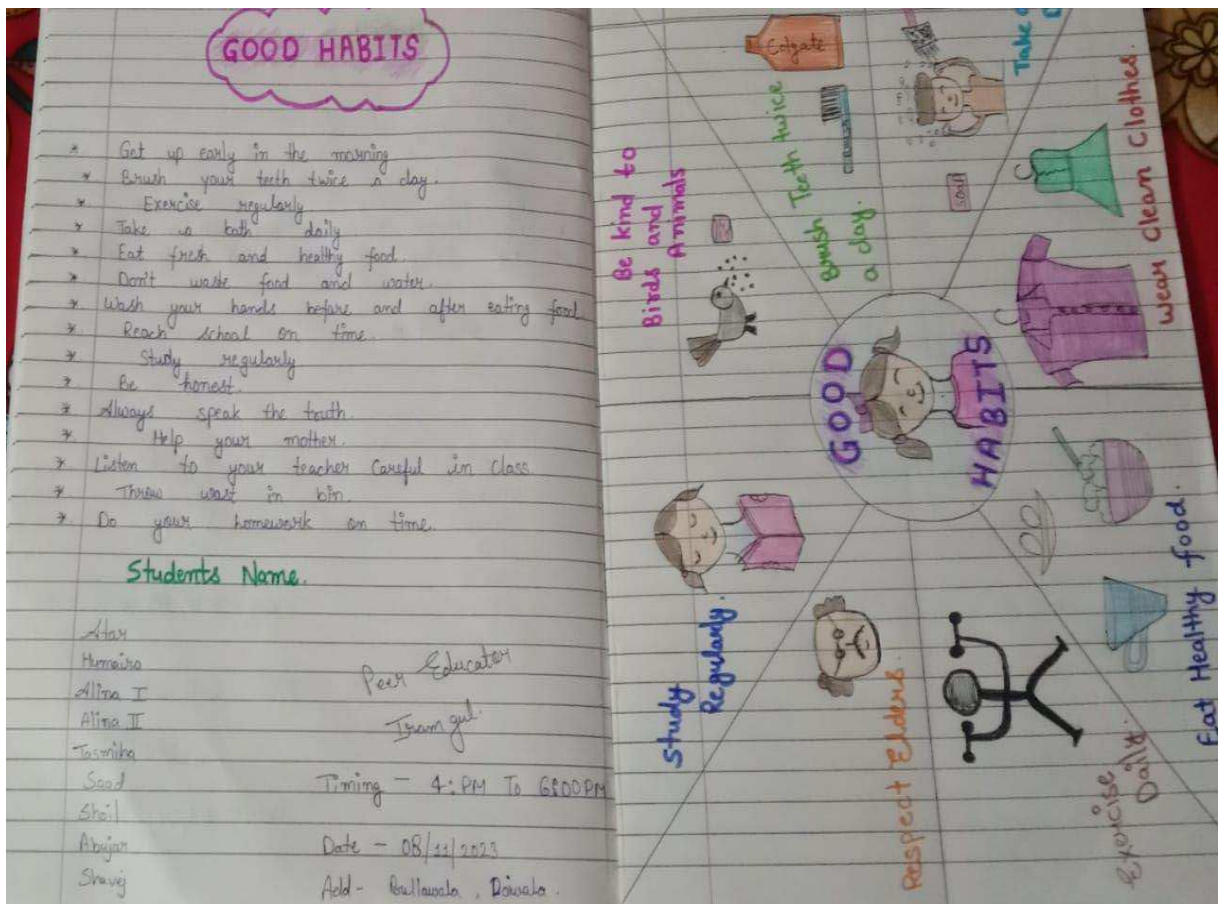 GOOD HABITS
* Get up early in the morning
* Brush your teeth twice a day.
* Exercise regularly
* Take a bath daily
* Eat fresh and healthy food.
* Don't waste food and water.
* Wash your hands before and after eating food
* Reach school on time.
* Study regularly
* Be honest.
* Always speak the truth.
* Help your mother.
* Listen to your teacher Careful in Class
* Throw wast in bin.
* Do your homework on time.
Students Name.
Atar
Humaira
Alina I
Alina II
Tasmiha
Saad
Shoil
Abujar
Shavej
Peer Educator
Iram gul.
Timing - 4:PM To 6:00PM
Date - 08/11/2023
Add- Bullawala, Doiwala.
GOOD
HABITS
Be kind to
Birds and
Animals
Brush Teeth twice
a day.
Colgate
Take
Soap
Wear Clean Clothes.
Eat Healthy food.
Exercise
Daily.
Respect Elders.
Study
Regularly.